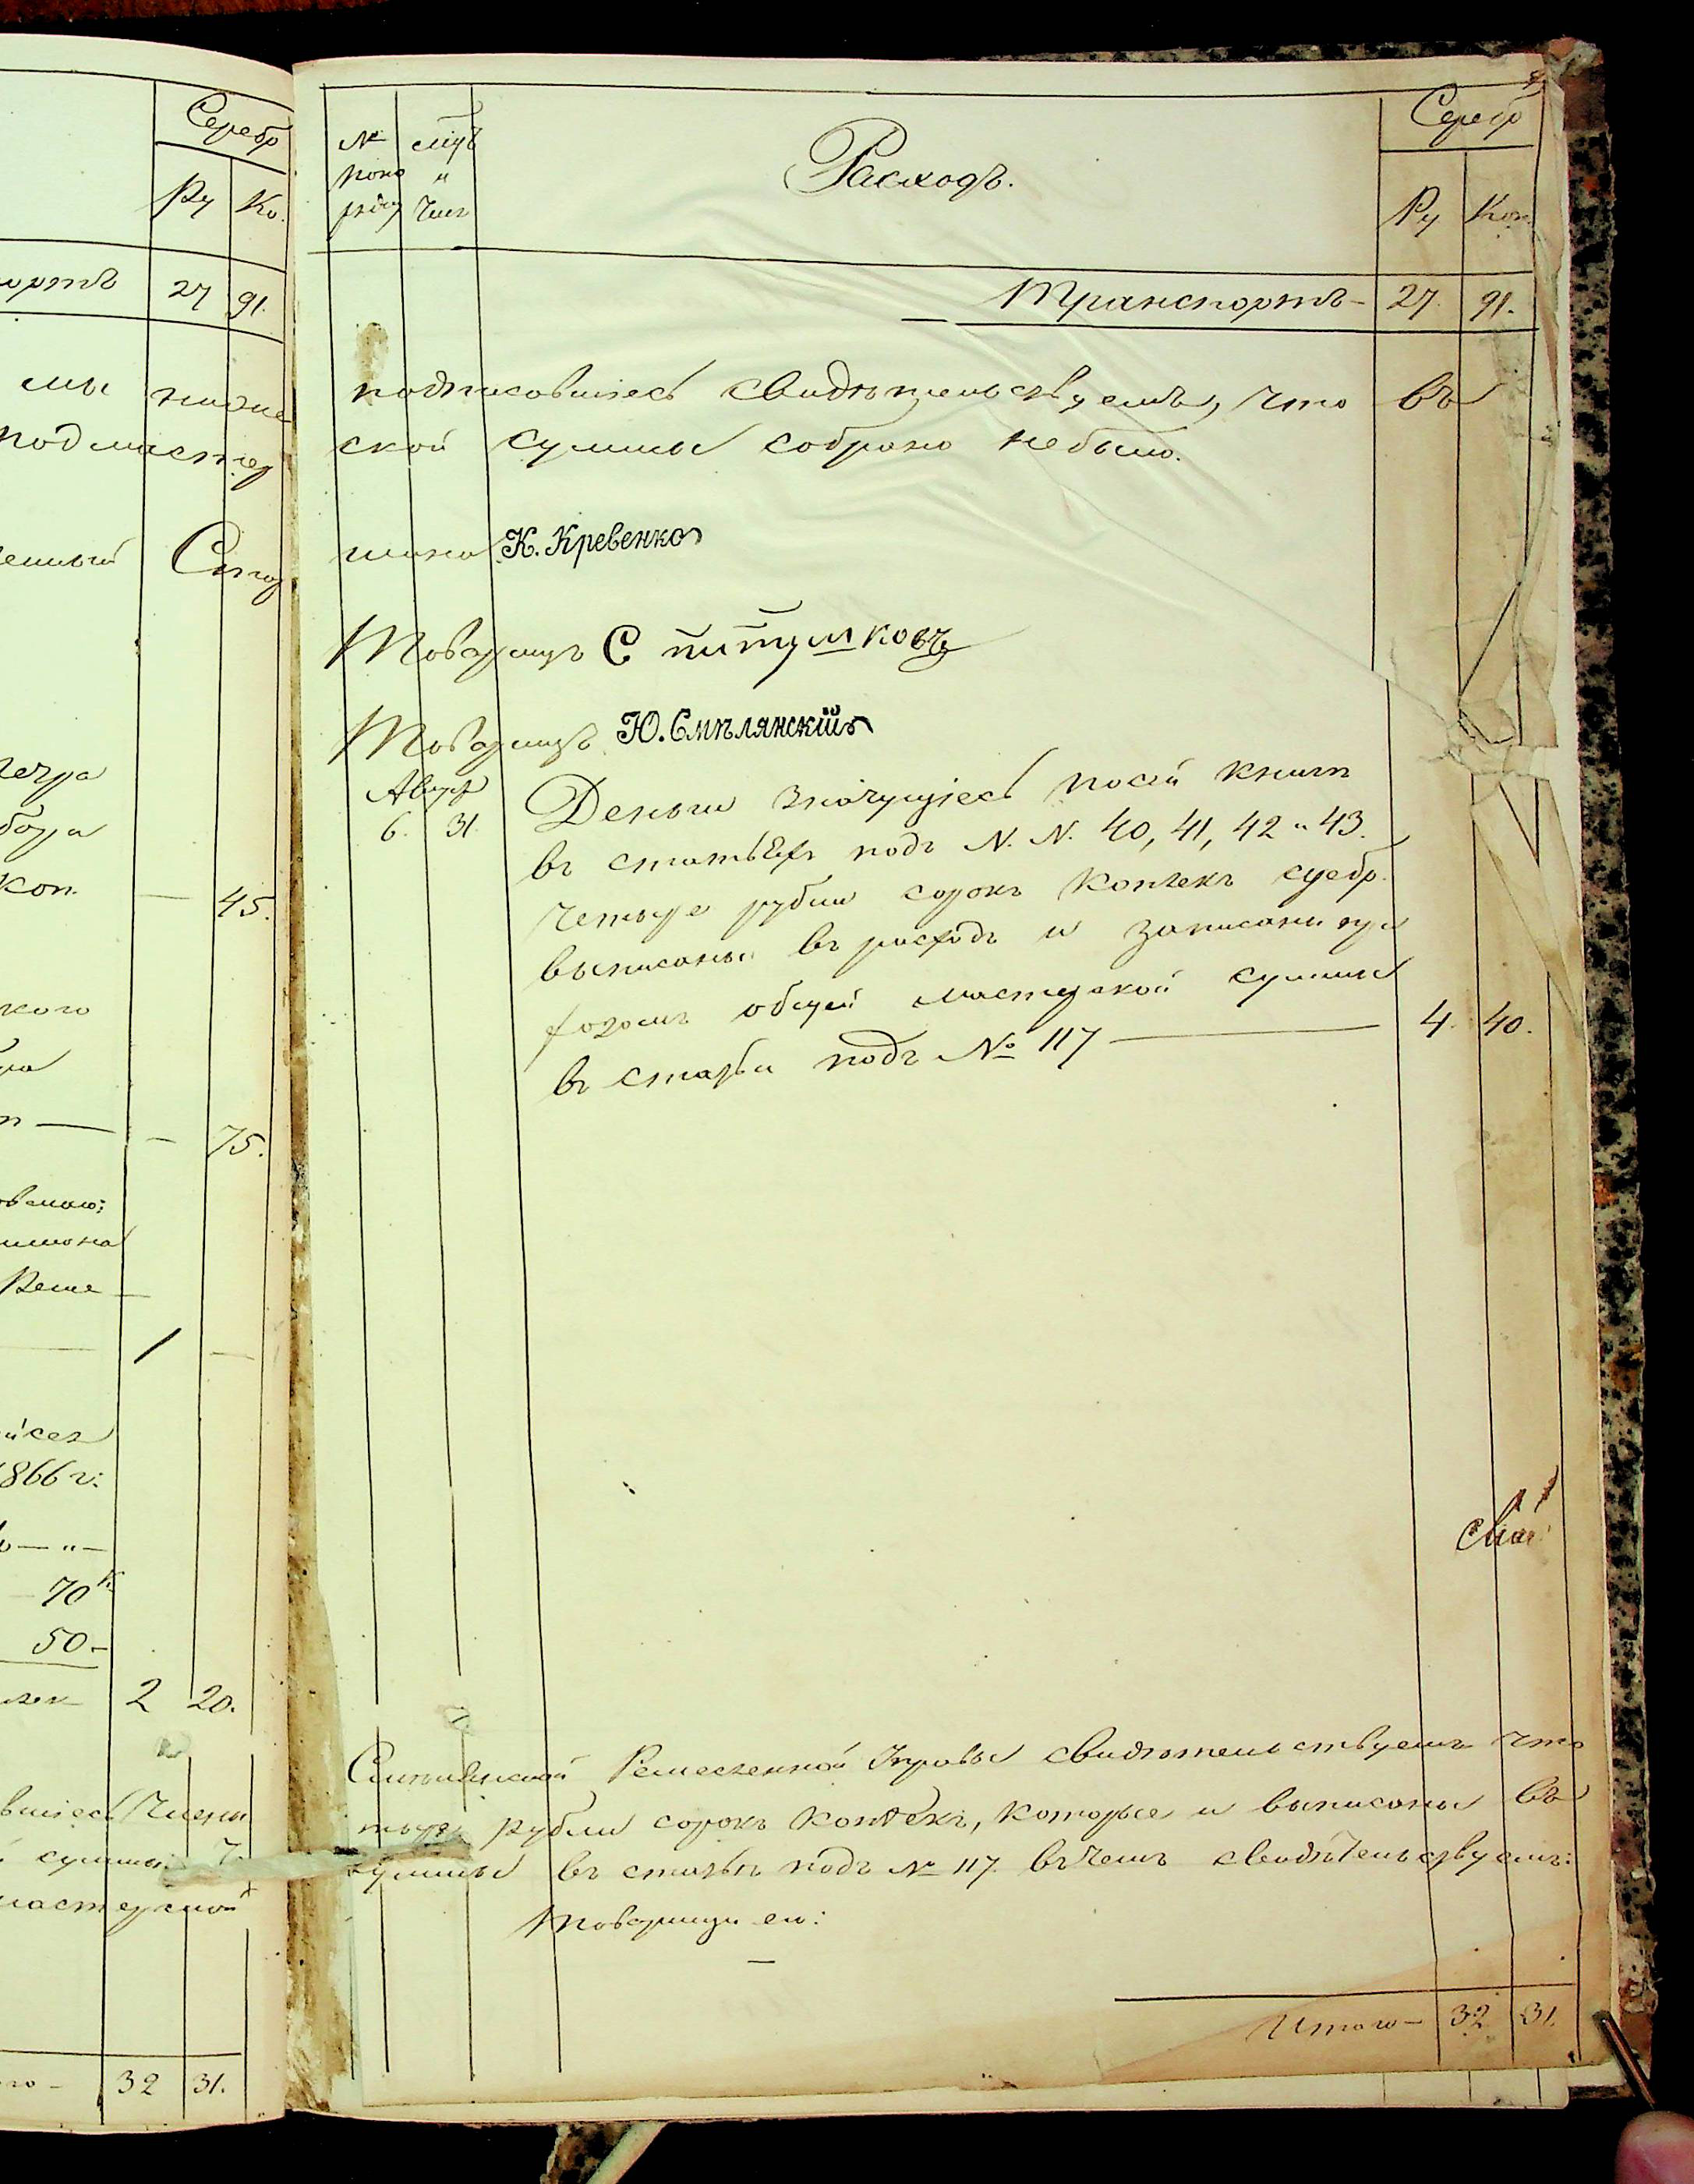 Серебр
Ру Ко.
27 91.
мы ниже
подмастер
Кон.
45.
кого
75.
Реме
1
1866 г:
70 к.
50-
2 20.
суммы
мастерской
32 31.
№ поко рядку
мцъ и Чис
Расходъ.
Серебр
Ру Коп.
Транспортъ- 27. 91.
подписовшіесь свидѣтельствуемъ, что въ
ской суммы собрано небыло.
шина К. Кревенко
Товарищъ С питушковъ
Товарищъ Ю. Смѣлянскій
Авгус
6. 31.
Деньги значущіесь посей книги
въ статьехъ подъ N. N. 40, 41, 42 и 43.
четыре рубли сорокъ копѣекъ сребр.
выписаны въ расходъ и записани при
ходомъ общей мастерской суммы
въ статьи подъ № 117 — 4. 40.
Ремесленной Управы свидѣтельствуемъ что
тыре рубли сорокъ копѣекъ, которые и выписаны въ
суммы въ статьѣ подъ № 117 въ чемъ свидѣтельствуемъ:
Товарищи ею:
Итого- 32 31.